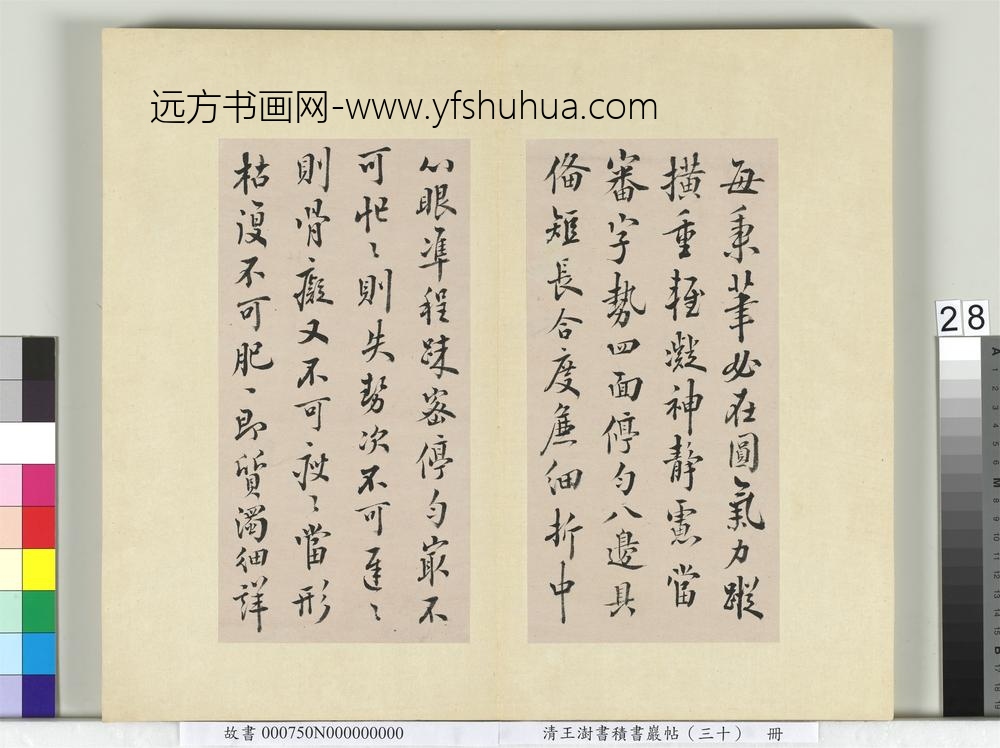 远方书画网-www.yfshuhua.com
每秉筆必在圓氣力蹤
橫重輕凝神靜慮當
審字勢四面停勻八邊具
備短長合度麄細折中
心眼準程踈密停勻寂不
可忙〻則失勢次不可遲〻
則骨癡又不可瘦〻當形
枯復不可肥〻即質濁細詳
28
故書 000750N000000000
清王澍書積書巖帖（三十） 冊